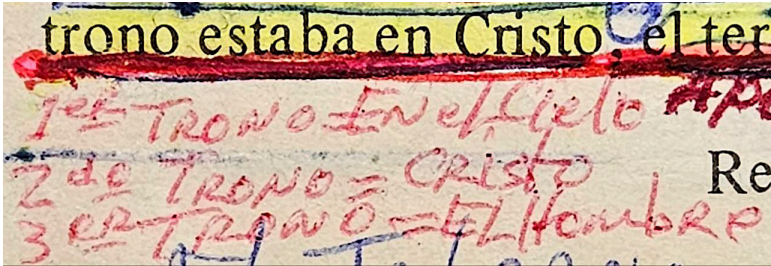 trono estaba en Cristo, el ter
1er TRONO = EN el Cielo
2do TRONO = CRISTO Re
3er TRONO = El Hombre